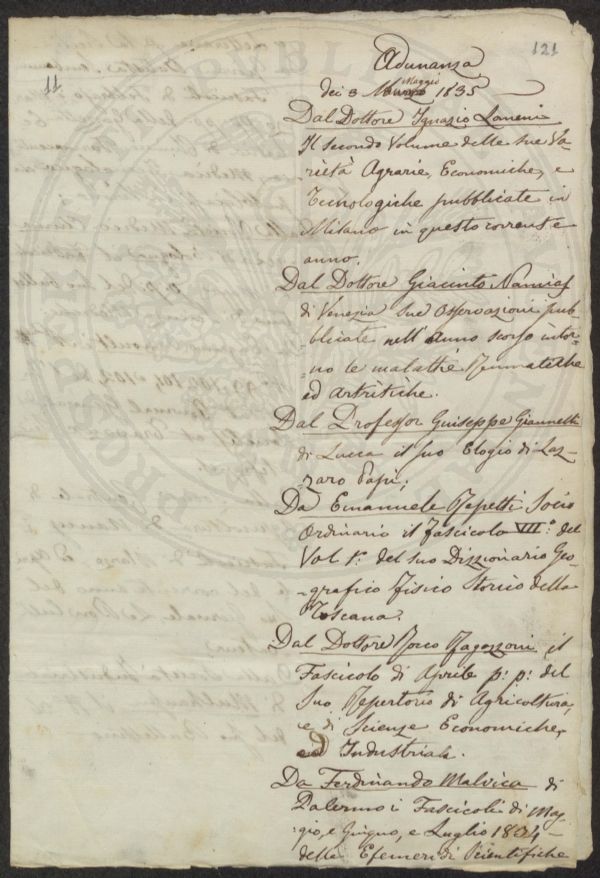 121
11
Adunanza
dei 3 Maggio 1835
Dal Dottore Ignazio Lomeni
Il secondo Volume delle sue Va-
rietà Agrarie, Economiche, e
Tecnologiche pubblicate in
Milano in questo corrente
anno.
Dal Dottore Giacinto Namias
di Venezia sue Osservazioni pub-
blicate nell'anno scorso intor-
no le malathie Reumatiche
ed artritiche.
Dal Professor Guiseppe Giannelli
di Lucca il suo Elogio di Laz-
zaro Papi;
Da Emanuele Repetti Socio
Ordinario il fascicolo VII.° del
Vol. 1.° del suo Dizzionario Geo-
grafico Fisico Storico della
Toscana.
Dal Dottore Rocco Ragazzoni, il
Fascicolo di Aprile p: p: del
suo Repertorio di Agricoltura,
e di Scienze Economiche,
ed Industriali.
Da Ferdinando Malvica di
Palermo i Fascicoli di Mag-
gio, e Giugno, e Luglio 1834
delle Efemeridi Scientifiche